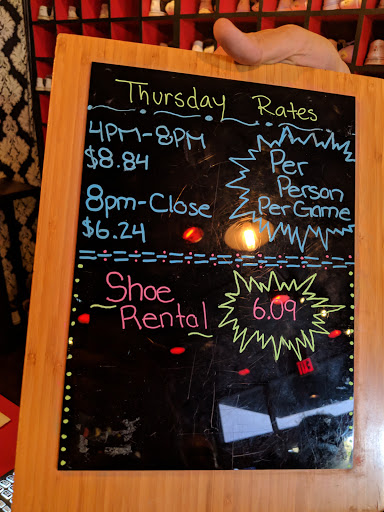 Thursday Rates
4PM-8PM
$8.84
8pm-Close
$6.24
Per
Person
Per Game
Shoe
Rental
6.09